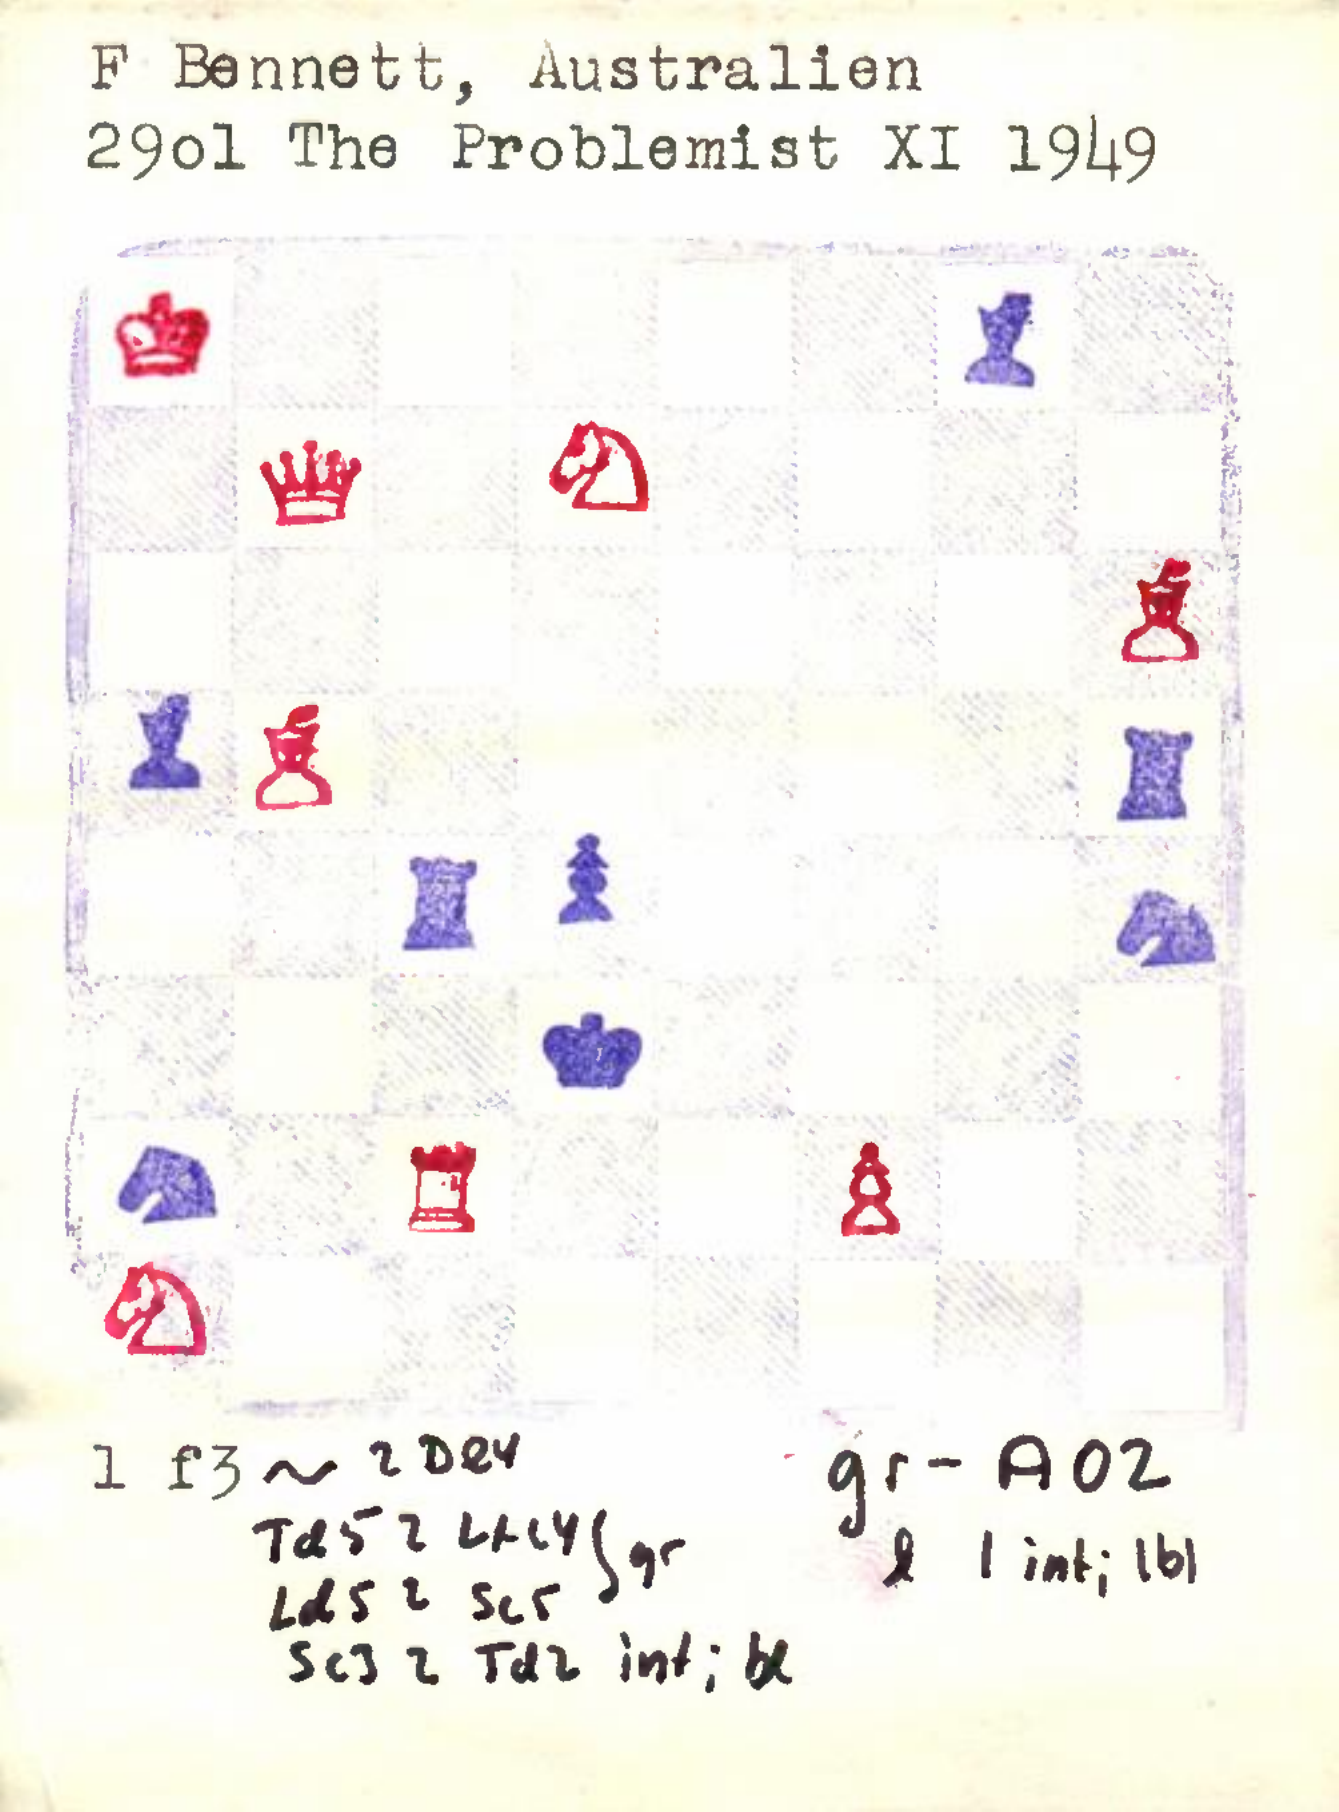 F Bennett, Australien
29ol The Problemist XI 1949
1 f3 ~ 2 De4
Td5 2 Lxc4 } gr
Ld5 2 Sc5
Sc3 2 Td2 int; bl
gr- A02
l 1 int; 1bl